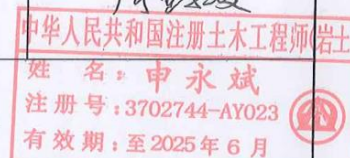 中华人民共和国注册土木工程师(岩土
姓 名:申永斌
注册号:3702744-AY023
有效期:至2025年6月